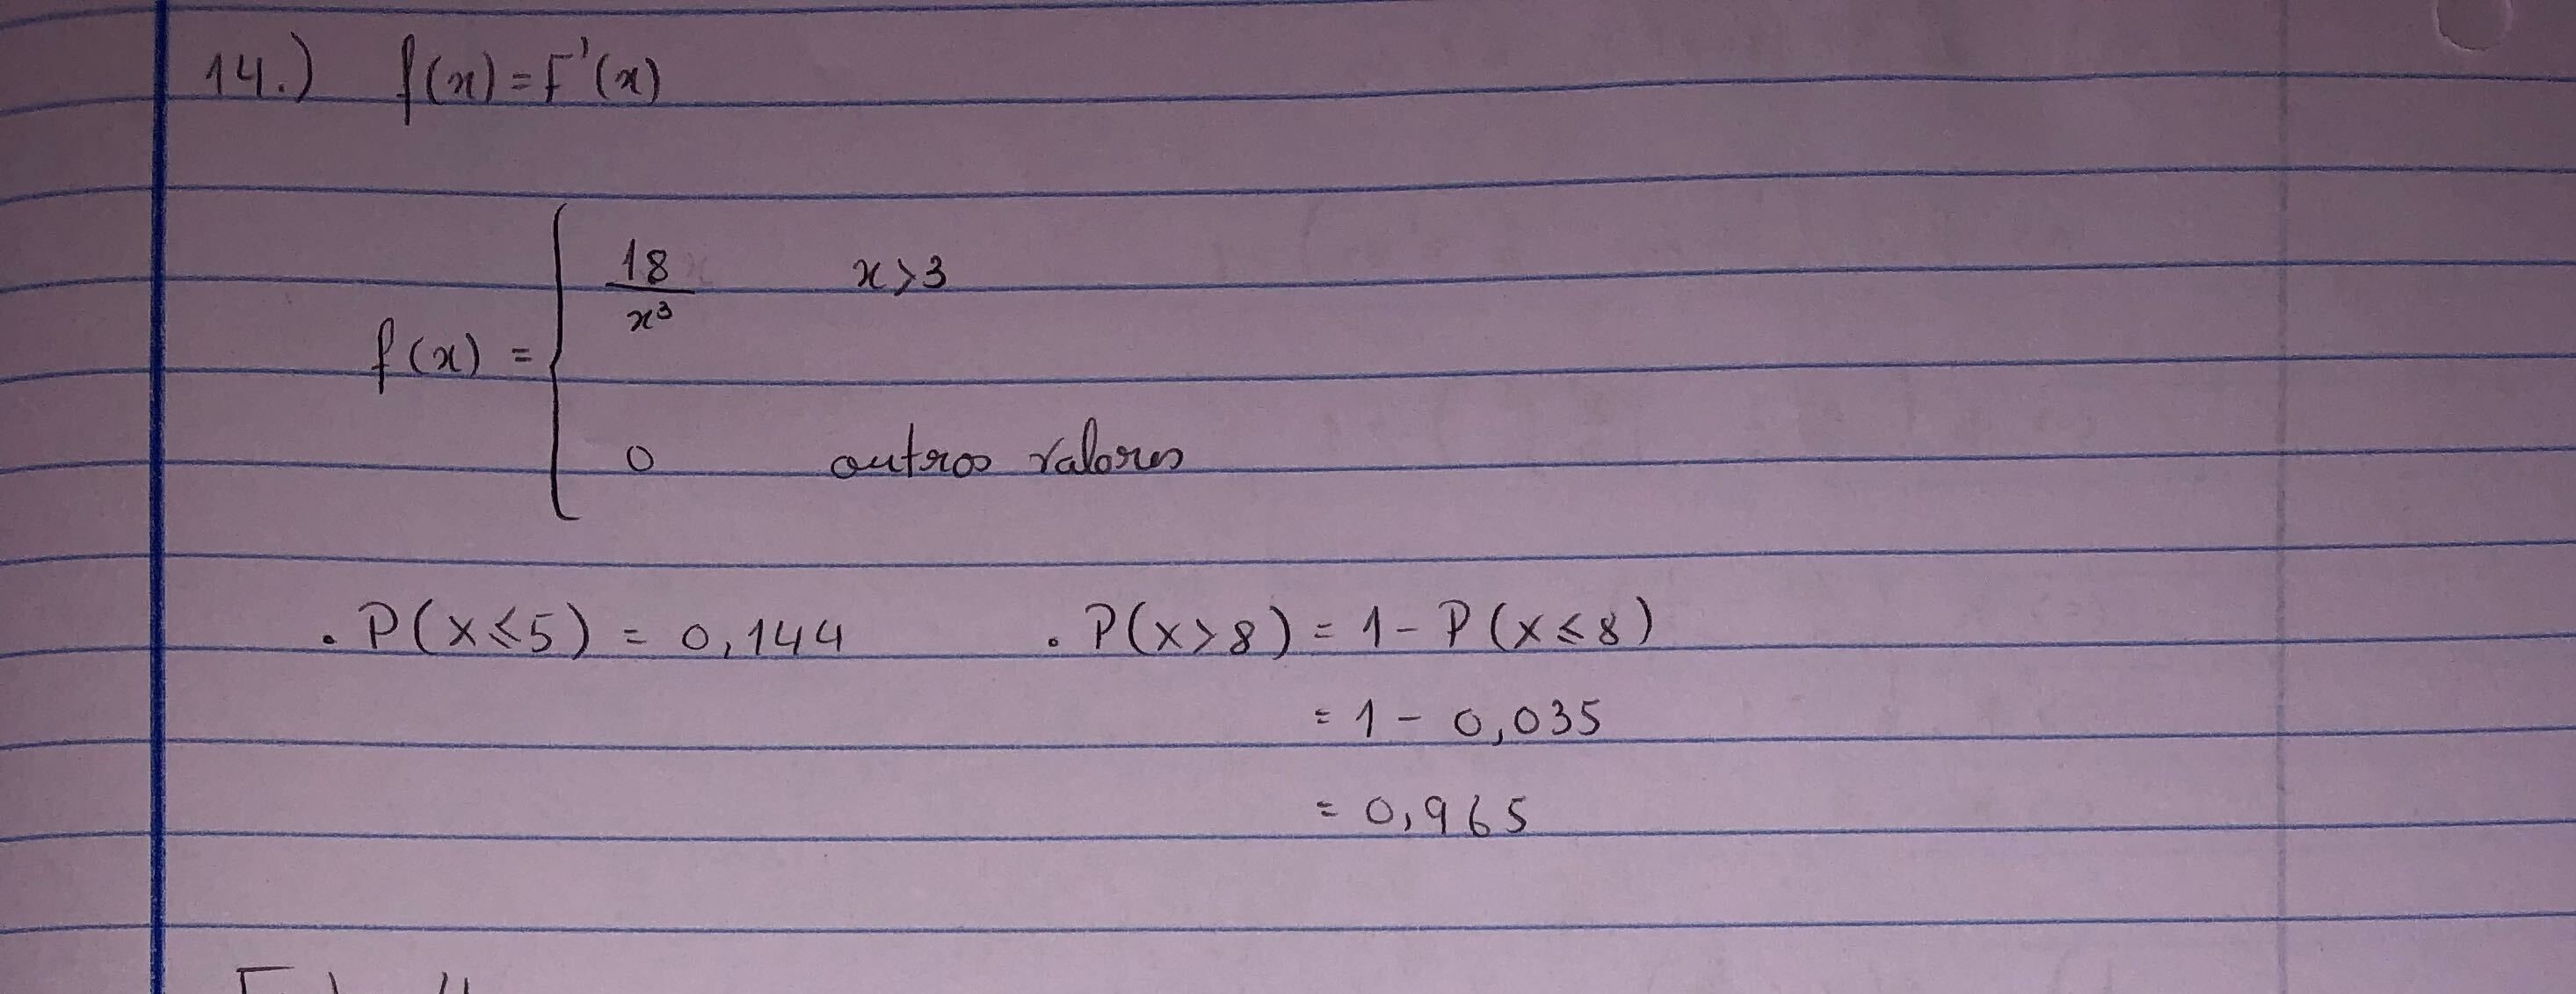 14.) f(x) = F'(x)
18/x³ x>3
f(x) =
0 outros valores
. P(X≤5) = 0,144 . P(X>8) = 1 - P(X≤8)
= 1 - 0,035
= 0,965